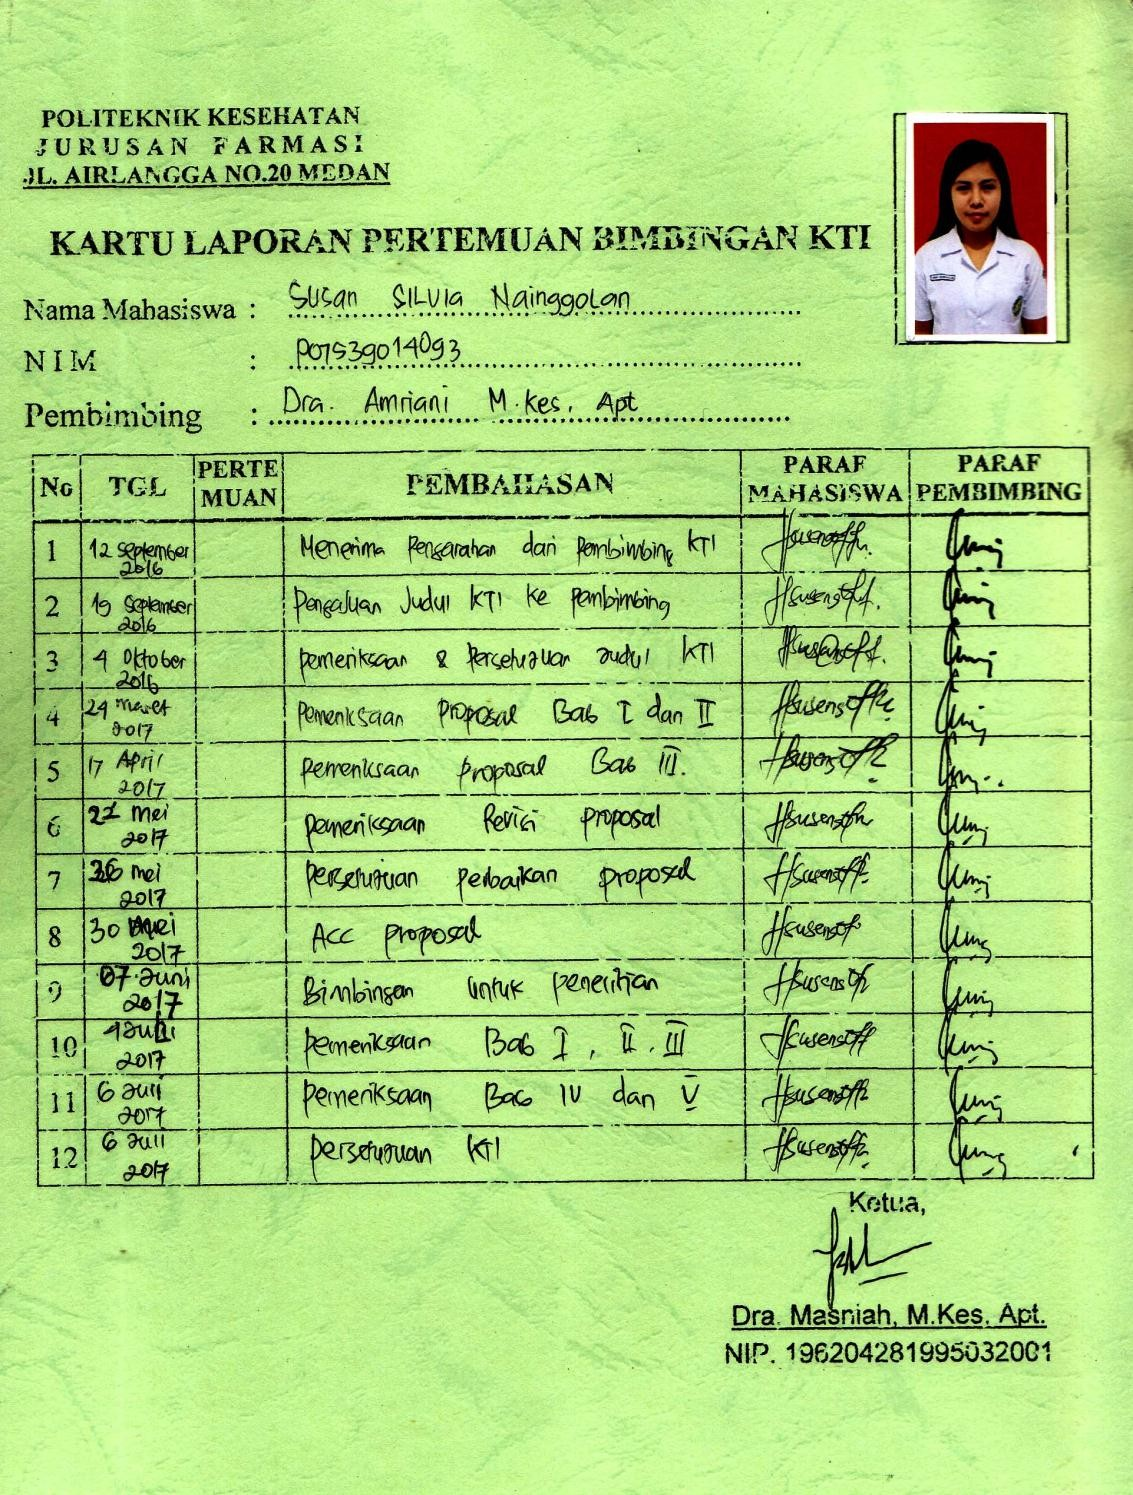 POLITEKNIK KESEHATAN
JURUSAN FARMASI
JL. AIRLANGGA NO.20 MEDAN
KARTU LAPORAN PERTEMUAN BIMBINGAN KTI
Nama Mahasiswa : Susan Silvia Nainggolan
NIM : P07539014093
Pembimbing : Dra. Amriani M.Kes, Apt
No TGL PERTEMUAN PEMBAHASAN PARAF MAHASISWA PARAF PEMBIMBING
1 12 September 2016 Menerima Pengarahan dari Pembimbing KTI
2 19 September 2016 Pengajuan Judul KTI ke Pembimbing
3 4 Oktober 2016 Pemeriksaan & Persetujuan Judul KTI
4 24 maret 2017 Pemeriksaan Proposal Bab I dan II
5 17 April 2017 Pemeriksaan Proposal Bab III.
6 22 Mei 2017 Pemeriksaan Revisi Proposal
7 26 mei 2017 Persetujuan Perbaikan proposal
8 30 Mei 2017 Acc proposal
9 07 Juni 2017 Bimbingan untuk penelitian
10 4 Juli 2017 Pemeriksaan Bab I, II, III
11 6 Juli 2017 Pemeriksaan Bab IV dan V
12 6 Juli 2017 Persetujuan KTI
Ketua,
Dra. Masniah, M.Kes, Apt.
NIP. 196204281995032001